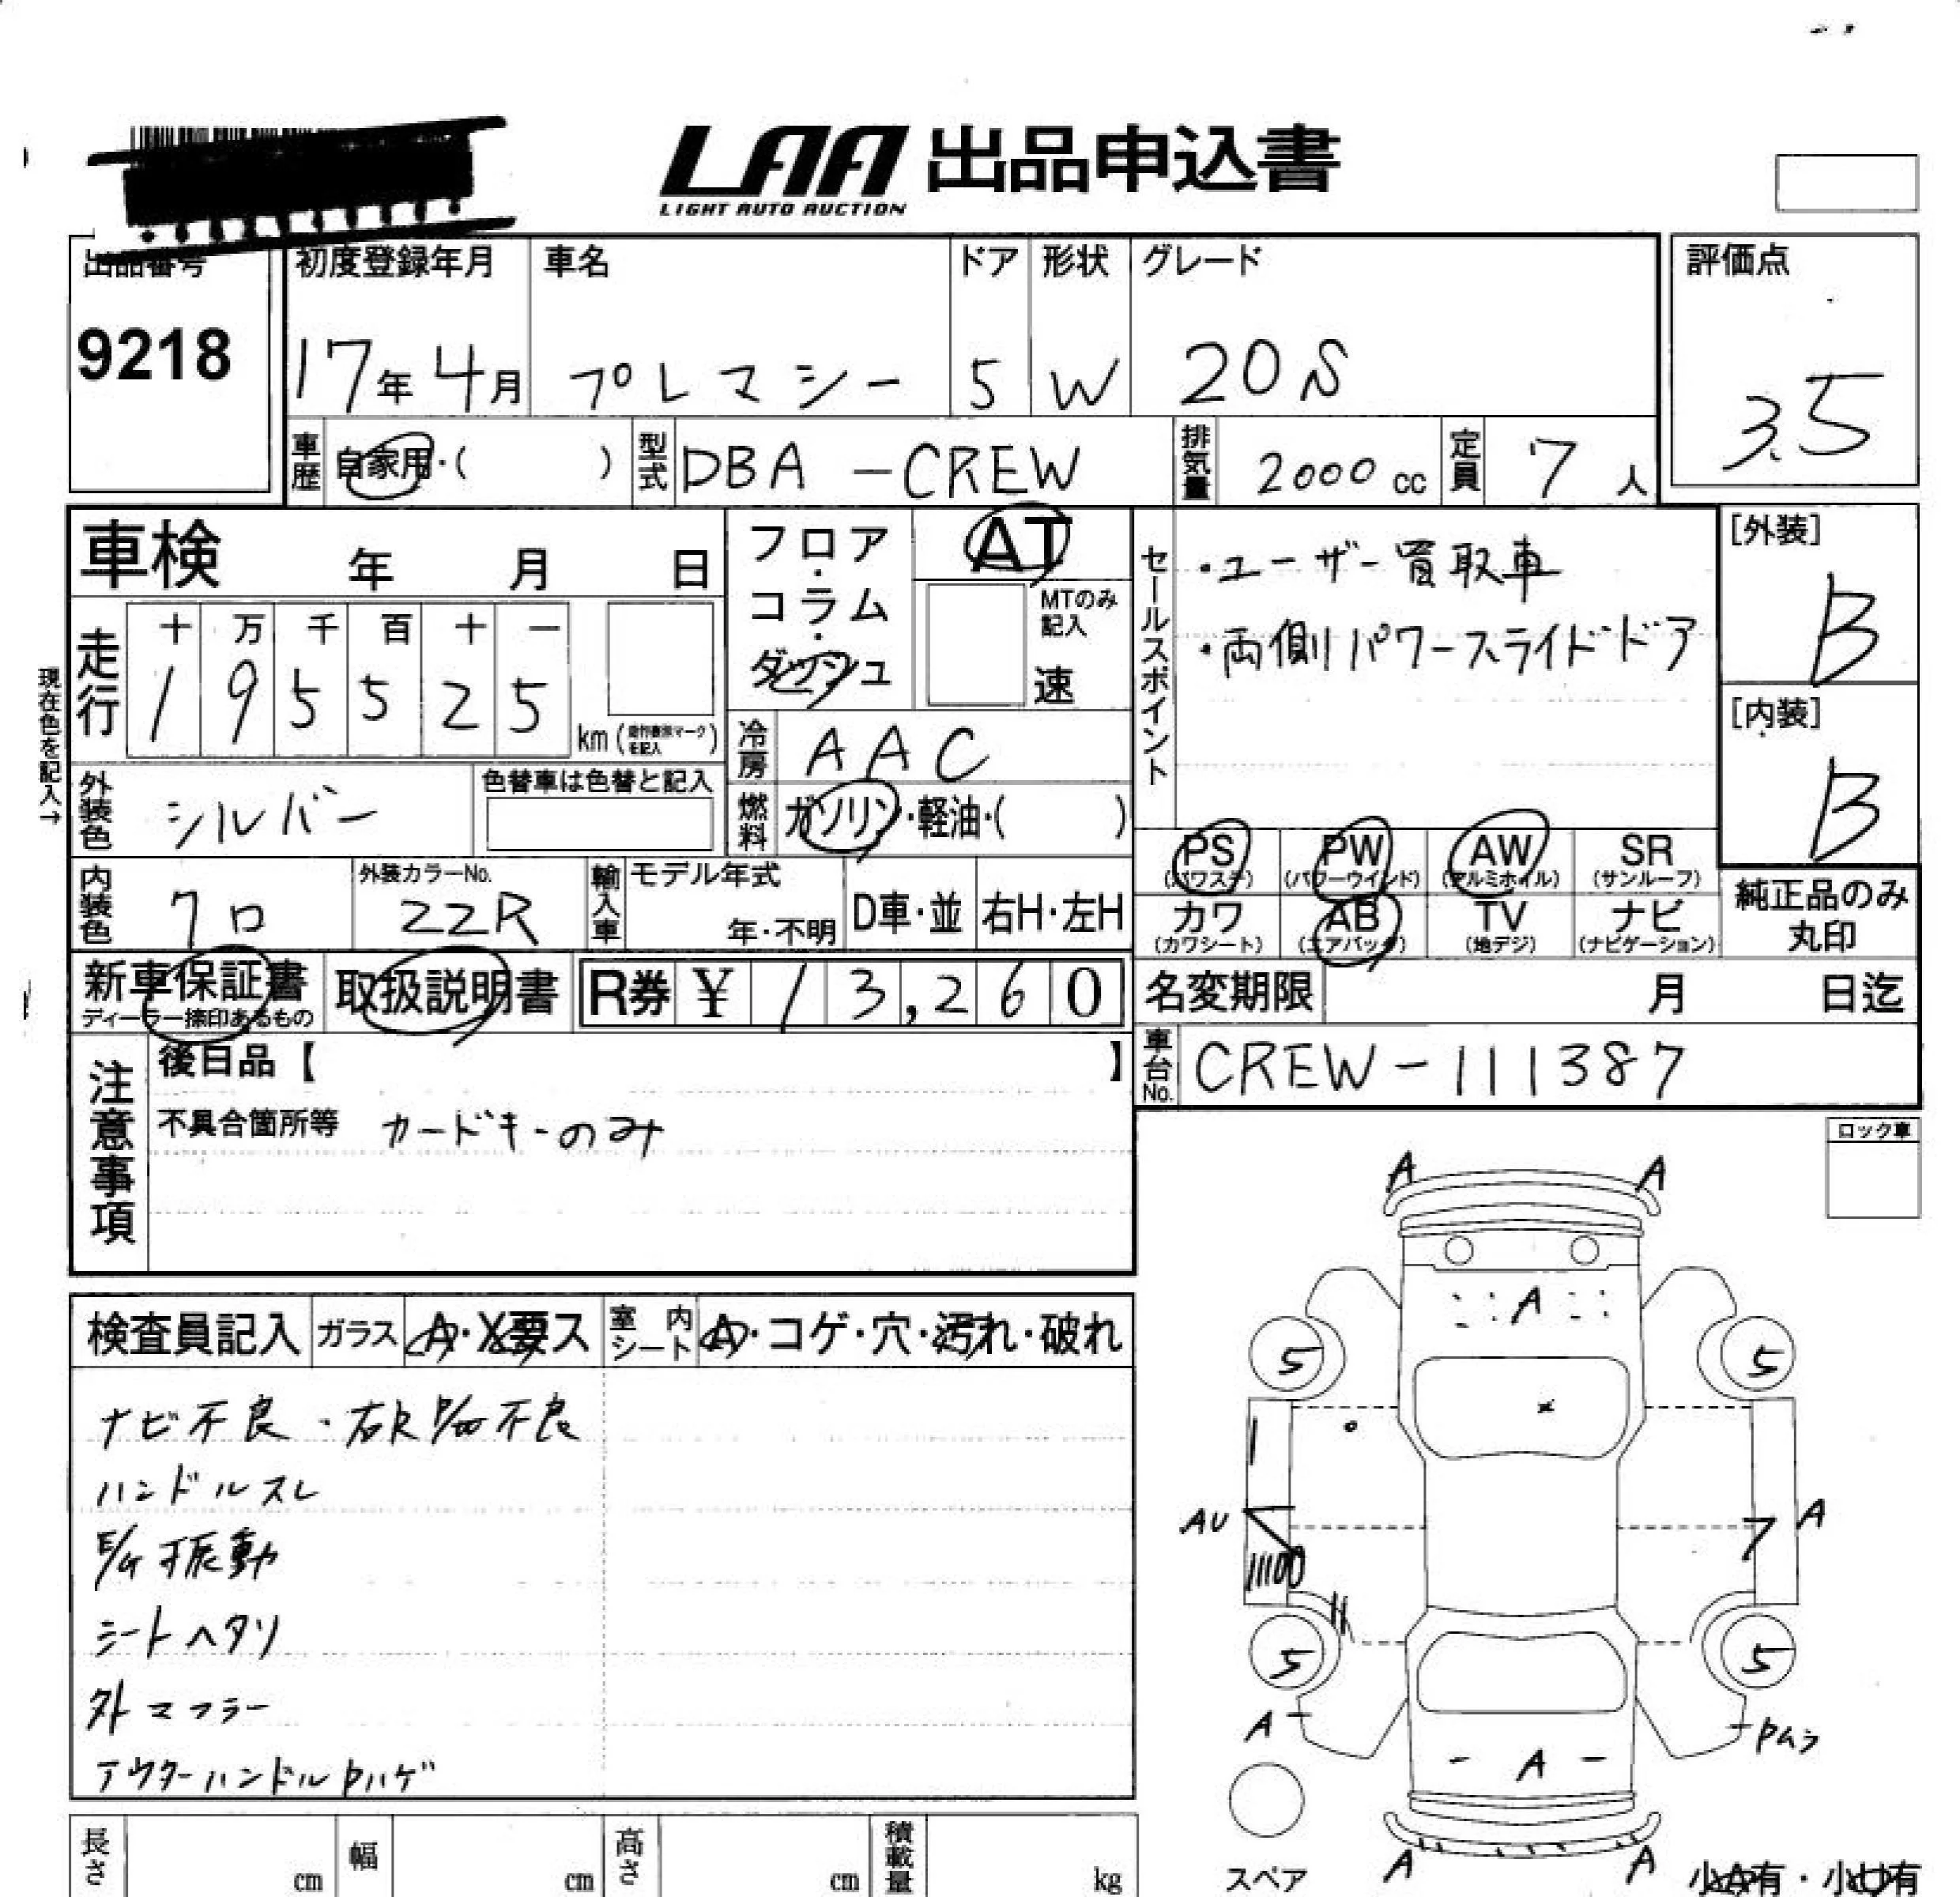 LAA 出品申込書
LIGHT AUTO AUCTION
出品番号 初度登録年月 車名 ドア 形状 グレード 評価点
9218 17年4月 プレマシー 5 W 20S 3.5
車歴 自家用・( ) 型式 DBA-CREW 排気量 2000cc 定員 7人
車検 年 月 日 フロア・コラム・ダッシュ AT
MTのみ記入 速
セールスポイント
・ユーザー買取車
・両側パワースライドドア
[外装] B
[内装] B
現在色を記入→
走行 十 万 千 百 十 一
1 9 5 5 2 5 km
冷房 AAC
外装色 シルバー 色替車は色替と記入
燃料 ガソリン・軽油・( )
PS AW PW SR
(パワステ) (パワーウインド) (アルミホイル) (サンルーフ)
内装色 クロ 外装カラーNo. 22R 輸入車 モデル年式 年・不明 D車・並 右H・左H
カワ AB TV ナビ
(カワシート) (エアバック) (地デジ) (ナビゲーション)
純正品のみ
丸印
新車保証書 取扱説明書 R券 ¥ 13,260
ディーラー捺印あるもの
名変期限 月 日迄
車台No. CREW-111387
注意事項
後日品【 】
不具合箇所等 カードキーのみ
ロック車
検査員記入 ガラス A・X要ス 室内シート A・コゲ・穴・汚れ・破れ
ナビ不良・右R P/W不良
ハンドルスレ
E/G振動
シートヘタリ
外マフラー
アウターハンドルPハゲ
A A
A
5 5
AU A
5 5
A Pムラ
A
A A
スペア
小A有・小U有
長さ cm 幅 cm 高さ cm 積載量 kg